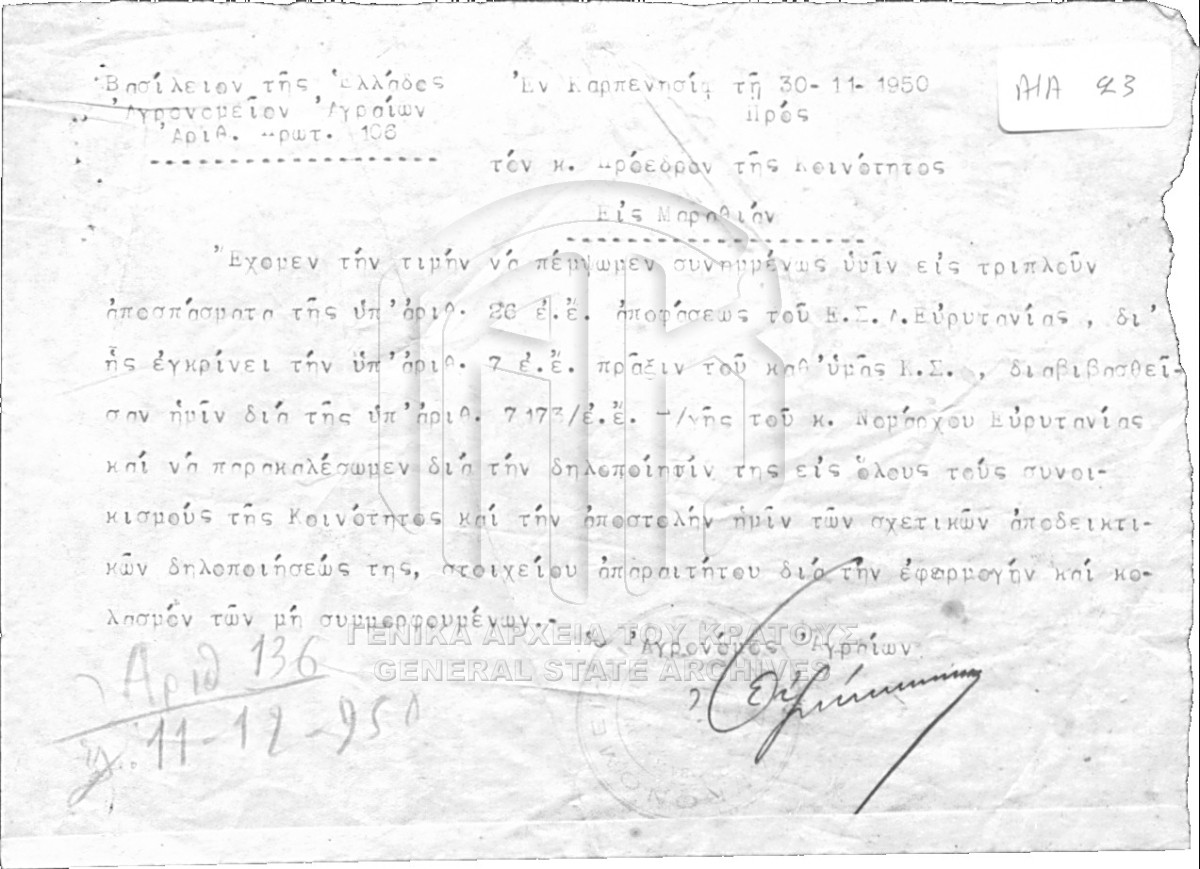 Βασίλειον τῆς Ἑλλάδος
Ἀγρονομεῖον Ἀγραίων
Ἀριθ. Πρωτ. 106
Ἐν Καρπενησίῳ τῇ 30-11-1950
Πρός
Α/Α 23
τόν κ. Πρόεδρον τῆς Κοινότητος
Εἰς Μαραθιάν
Ἔχομεν τήν τιμήν νά πέμψωμεν συνημμένως ὑμῖν εἰς τριπλοῦν
ἀποσπάσματα τῆς ὑπ' ἀριθ. 26 ἐ.ἔ. ἀποφάσεως τοῦ Ε.Σ.Δ.Εὐρυτανίας, δι'
ἧς ἐγκρίνει τήν ὑπ' ἀριθ. 7 ἐ.ἔ. πρᾶξιν τοῦ καθ' ὑμᾶς Κ.Σ., διαβιβασθεῖ-
σαν ἡμῖν διά τῆς ὑπ' ἀριθ. 7173/ἐ.ἔ. Δ/γῆς τοῦ κ. Νομάρχου Εὐρυτανίας
καί νά παρακαλέσωμεν διά τήν δηλοποίησίν της εἰς ὅλους τούς συνοι-
κισμούς τῆς Κοινότητος καί τήν ἀποστολήν ἡμῖν τῶν σχετικῶν ἀποδεικτι-
κῶν δηλοποιήσεώς της, στοιχείου ἀπαραιτήτου διά τήν ἐφαρμογήν καί κο-
λασμόν τῶν μή συμμορφουμένων.-
ΓΕΝΙΚΑ ΑΡΧΕΙΑ ΤΟΥ ΚΡΑΤΟΥΣ
Ὁ Ἀγρονόμος Ἀγραίων
GENERAL STATE ARCHIVES
Ἀριθ 136
11-12-950